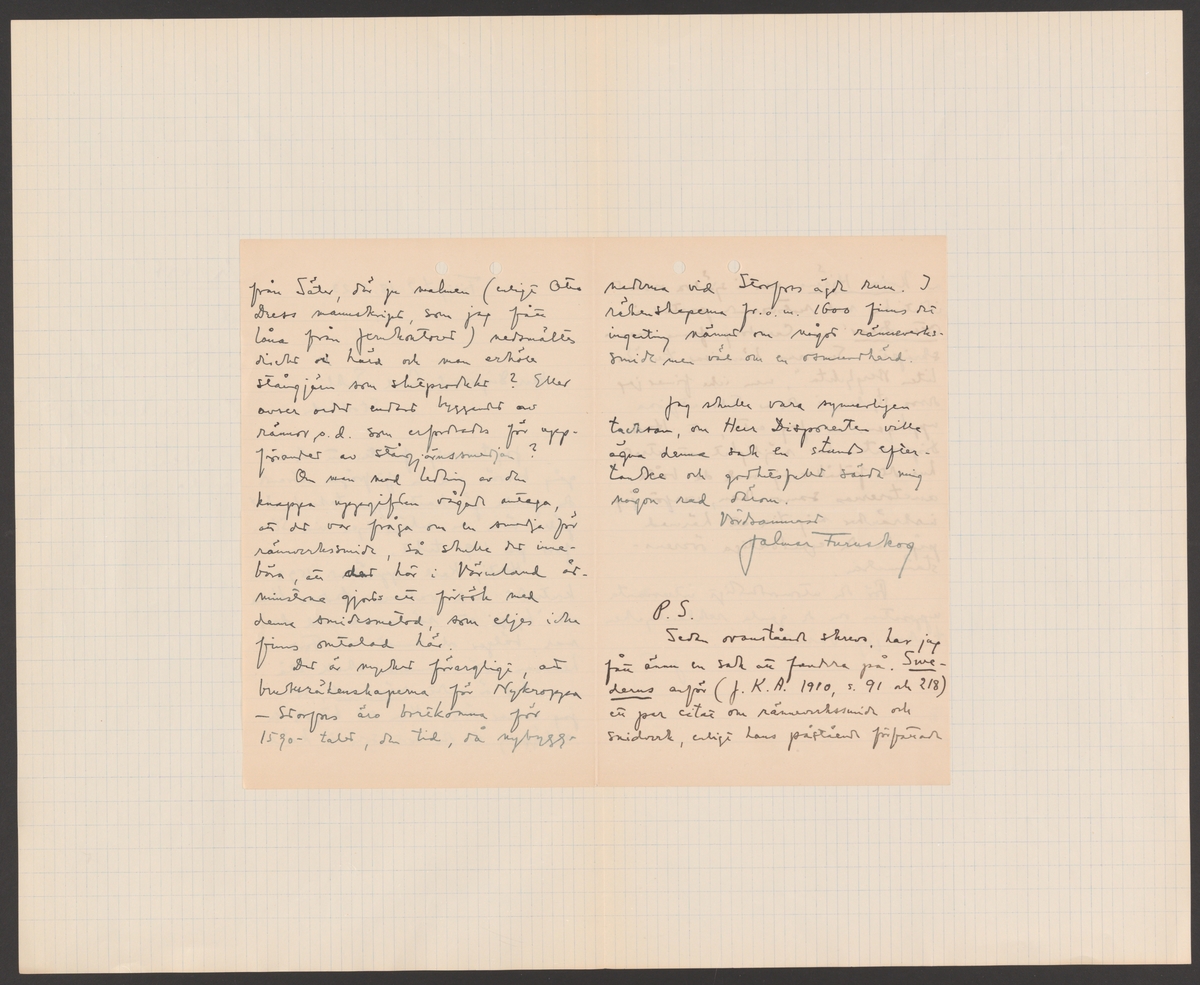 från Säter, där ju malmen (enligt Otto
Dress manuskript, som jag fått
låna från Jernkontoret) nedsmältes
direkt i härd och man erhöll
stångjärn som slutprodukt? Eller
avser ordet endast byggandet av
rännor o.d. som erfordrades för upp-
förandet av stångjärnssmedjan?
Om man med ledning av den
knappa uppgiften vågade antaga,
att det var fråga om en smedja för
rännverkssmide, så skulle det inne-
bära, att här i Värmland åt-
minstone gjorts ett försök med
denna smidesmetod, som eljes icke
finns omtalad här.
Det är mycket förargligt, att
bruksräkenskaperna för Nykroppa
— Storfors äro bortkomna för
1590-talet, den tid, då nybygg-
naderna vid Storfors ägde rum. I
räkenskaperna fr.o.m. 1600 finns det
ingenting nämnt om något rännverks-
smide men väl om en osmundhärd.
Jag skulle vara synnerligen
tacksam, om Herr Disponenten ville
ägna denna sak en stunds efter-
tanke och godhetsfullt sända mig
någon rad därom.
Vördsammast
Jalmar Furuskog
P.S.
Sedan ovanstående skrevs, har jag
fått ännu en sak att fundera på. Swe-
derus anför (J.K.A. 1910, s. 91 och 218)
ett par citat om rännverkssmide och
snidverk, enligt hans påstående författade